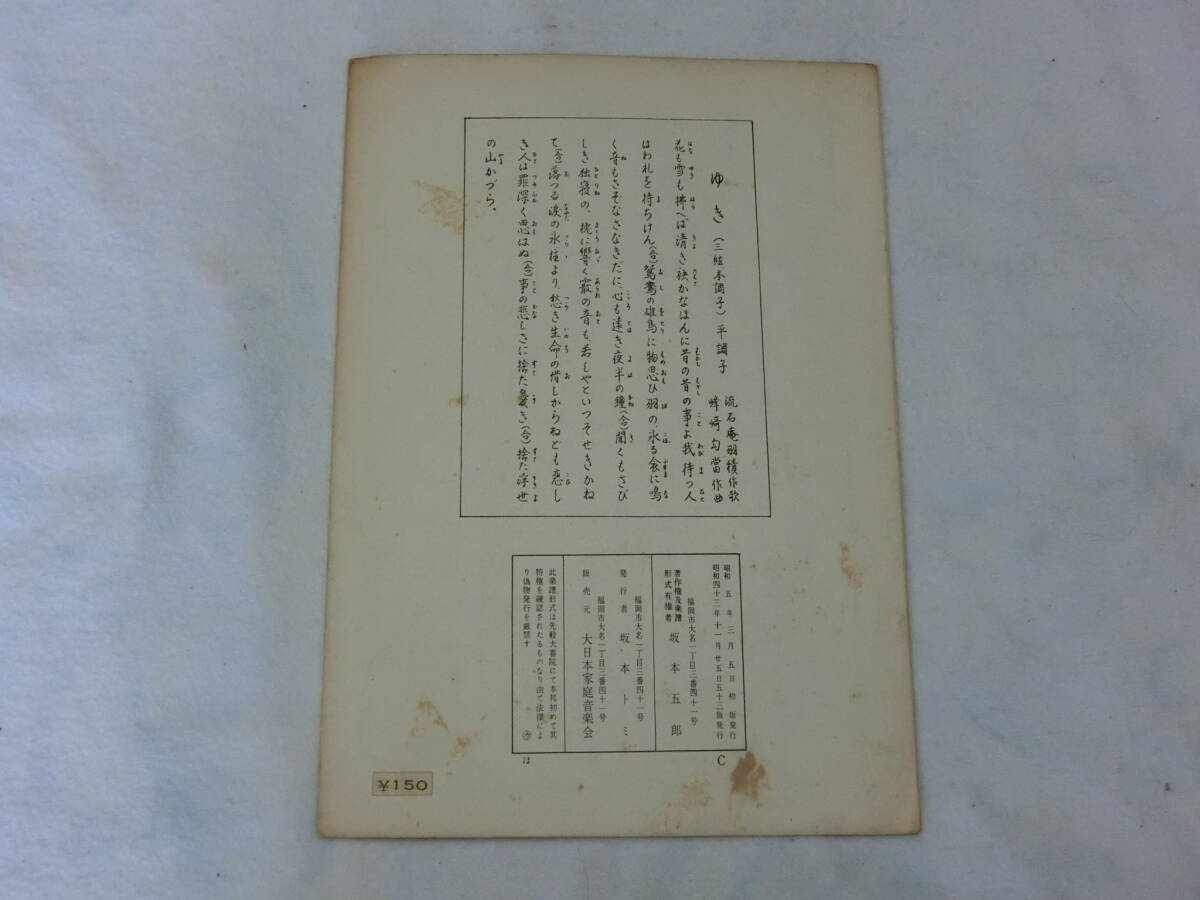 ゆき（三絃本調子）平調子
流石庵羽積作歌
峰崎勾當作曲
花も雪も拂へば清き袂かなほんに昔の昔の事よ我待つ人
はわれを待ちけん(合)鴛鴦の雄鳥に物思ひ羽の氷る衾に鳴
く音もさぞなさなきだに、心も遠き夜半の鐘(合)聞くもさび
しき独寝の、枕に響く霰の音も、若しやといつそせきかね
て(合)落つる涙の氷柱より、愁き生命の惜しからねども恋し
き人は罪深く思はぬ(合)事の悲しさに捨た憂き(合)捨た浮世
の山かづら、
昭和五年三月五日初版発行
昭和四十三年十一月廿五日五十三版発行
福岡市大名一丁目三番四十一号
著作権及楽譜形式有権者 坂本五郎
福岡市大名一丁目三番四十一号
発行者 坂本トミ
福岡市大名一丁目三番四十一号
販売元 大日本家庭音楽会
此楽譜形式は先般大審院にて本邦初めて其
特権を確認されたるものなり由て法律によ
り偽物発行を厳禁す
C
ほ
¥150